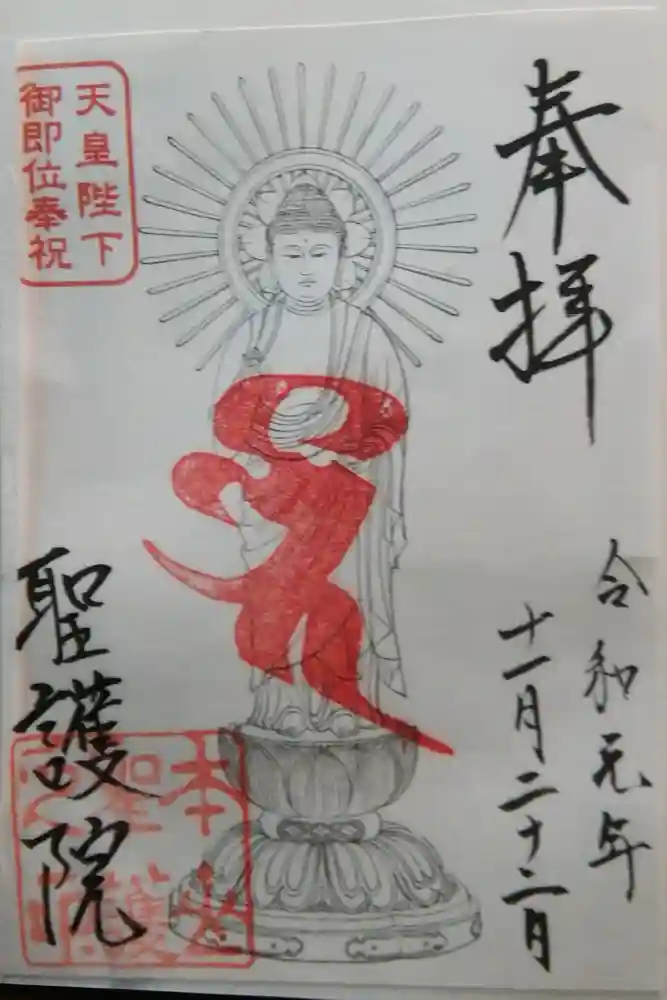 奉拝
令和元年
十一月二十二日
天皇陛下
御即位奉祝
聖護院
本
聖護